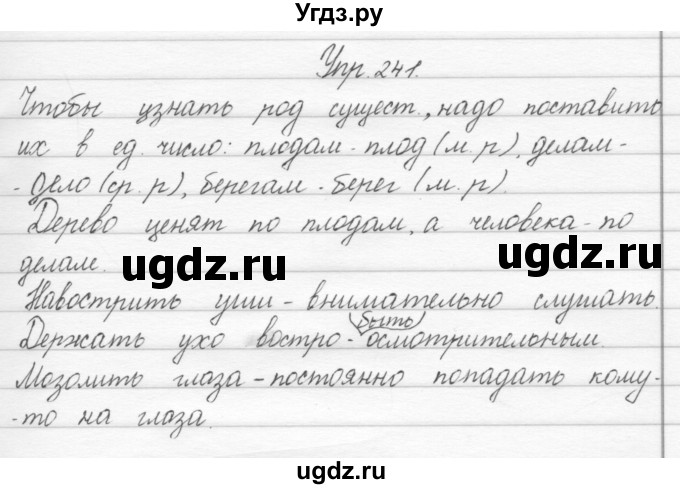 Угдз.ру
Упр. 241.
Чтобы узнать род сущест., надо поставить
их в ед. число: плодам - плод (м. р), делам -
- дело (ср. р), берегам - берег (м. р).
Дерево ценят по плодам, а человека - по
делам.
ugdz.ru ugdz.ru
Навострить уши - внимательно слушать.
быть
Держать ухо востро - осмотрительным.
Мозолить глаза - постоянно попадать кому-
-то на глаза.
ugdz.ru